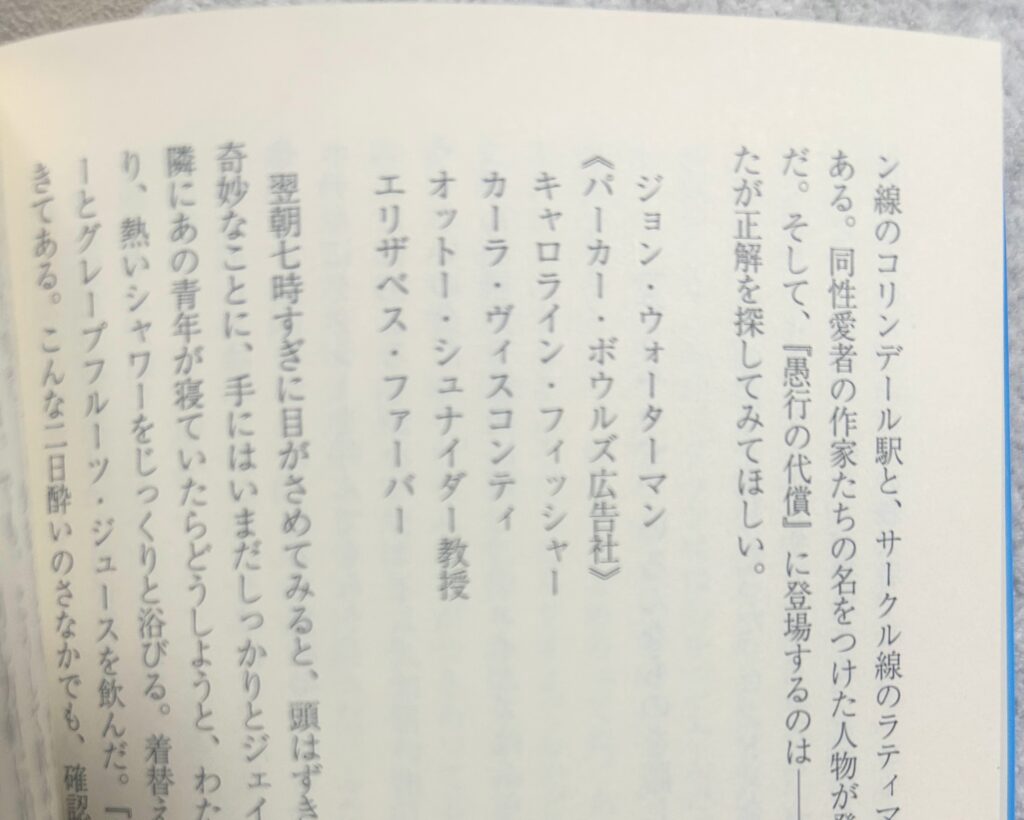 ン線のコリンデール駅と、サークル線のラティマ
ある。同性愛者の作家たちの名をつけた人物が登
だ。そして、『愚行の代償』に登場するのは――
たが正解を探してみてほしい。
ジョン・ウォーターマン
《パーカー・ボウルズ広告社》
キャロライン・フィッシャー
カーラ・ヴィスコンティ
オットー・シュナイダー教授
エリザベス・ファーバー
翌朝七時すぎに目がさめてみると、頭はずき
奇妙なことに、手にはいまだしっかりとジェイ
隣にあの青年が寝ていたらどうしようと、わた
り、熱いシャワーをじっくりと浴びる。着替え
ーとグレープフルーツ・ジュースを飲んだ。『
きてある。こんな二日酔いのさなかでも、確認